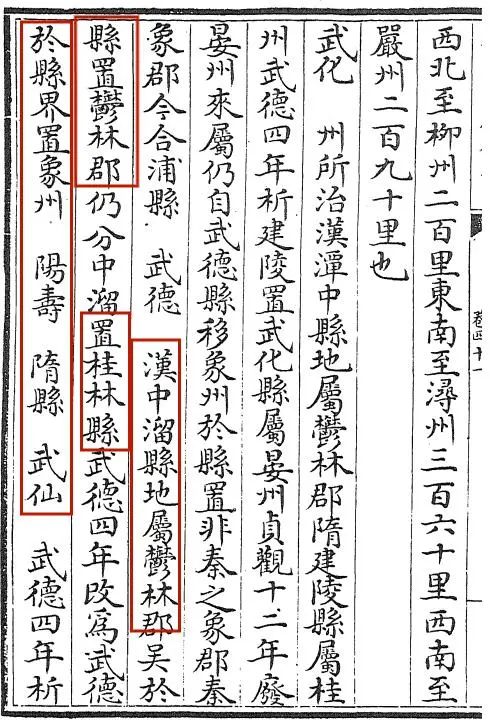 西北至柳州二百里東南至潯州三百六十里西南至
嚴州二百九十里也
武化 州所治漢潭中縣地屬鬱林郡隋建陵縣屬桂
州武德四年析建陵置武化縣屬晏州貞觀十二年廢
晏州來屬仍自武德縣移象州於縣置非秦之象郡秦
象郡今合浦縣 武德 漢中溜縣地屬鬱林郡吳於
縣置鬱林郡仍分中溜置桂林縣武德四年改爲武德
於縣界置象州 陽壽 隋縣 武仙 武德四年析